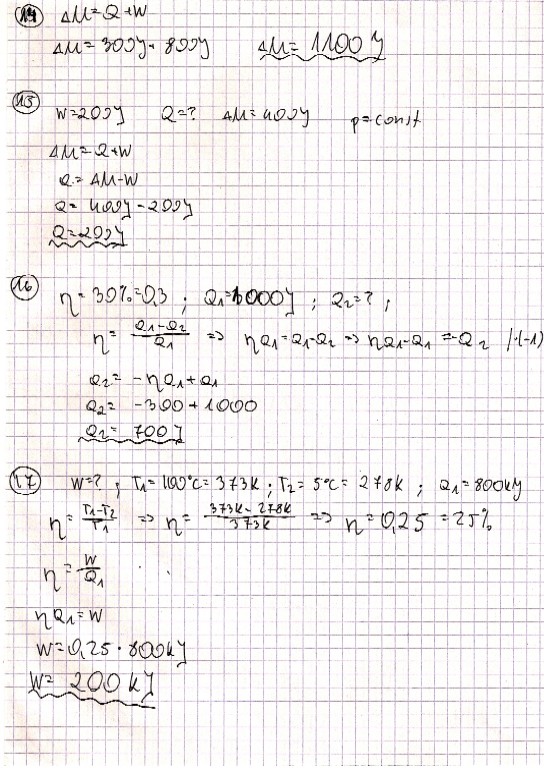 14 ΔU = Q + W
ΔU = 300J + 800J ΔU = 1100J
15 W = 200J Q = ? ΔU = 400J p = const
ΔU = Q + W
Q = ΔU - W
Q = 400J - 200J
Q = 200J
16 η = 30% = 0,3 ; Q1 = 1000J ; Q2 = ? ;
η = Q1-Q2/Q1 => ηQ1 = Q1-Q2 => ηQ1-Q1 = -Q2 /·(-1)
Q2 = -ηQ1 + Q1
Q2 = -300 + 1000
Q2 = 700J
17 W = ? ; T1 = 100°C = 373K ; T2 = 5°C = 278K ; Q1 = 800kJ
η = T1-T2/T1 => η = 373K - 278K/373K => η = 0,25 = 25%
η = W/Q1
ηQ1 = W
W = 0,25 · 800kJ
W = 200kJ